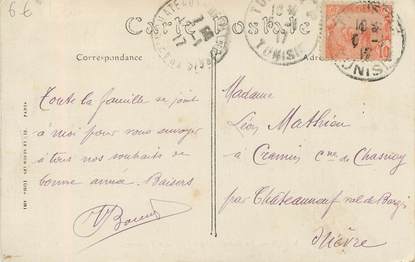 66
Carte Postale
Correspondance
TUNISIE
Toute la famille se joint
à moi pour vous envoyer
à tous nos souhaits de
bonne année. Baisers
Madame
Léon Mathieu
à Cramin cne de Chasnay
par Châteauneuf val de Bargis
Nièvre
PARIS